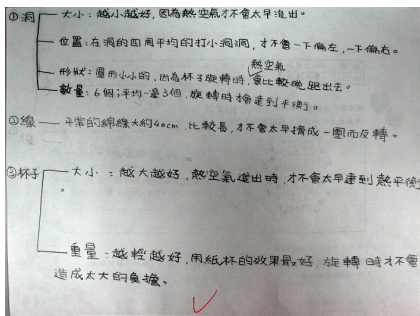 ①洞 大小：越小越好，因為熱空氣才不會太早進出。
位置：在洞的四周平均的打小洞洞，才不會一下偏左，一下偏右。
熱空氣
形狀：圓形小小的，因為杯子旋轉時，會比較晚跑出去。
數量：6個；平均一邊3個，旋轉時才會達到平衡。
②線 平常的綿線大約40cm，比較長，才不會太早擠成一團而反轉。
③杯子 大小：越大越好，熱空氣進出時，才不會太早達到熱平衡
。
重量：越輕越好，用紙杯的效果最好，旋轉時才不會
造成太大的負擔。